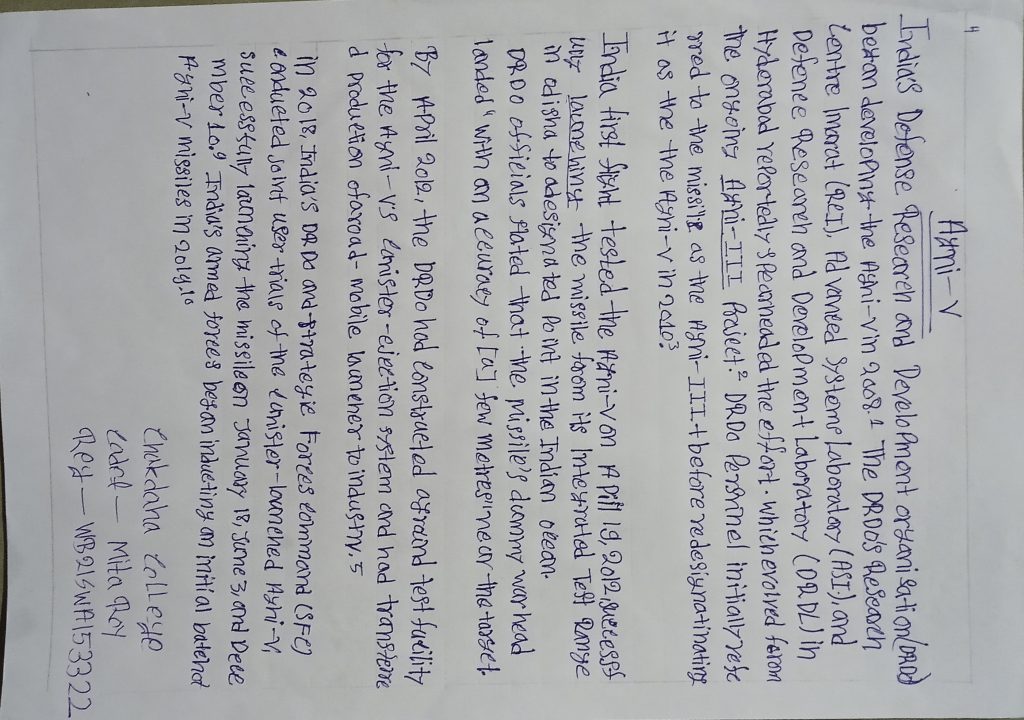 4
Agni-V
India's Defense Research and Development organisation (DRDO)
began developing the Agni-V in 2008.1 The DRDO's Research
Centre Imarat (RCI), Advanced Systems Laboratory (ASL), and
Defence Research and Development Laboratory (DRDL) in
Hyderabad reportedly spearheaded the effort. which evolved form
the ongoing Agni-III Project.2 DRDO Persinnel initially refe
rred to the missile as the Agni-III+ before redesignatinating
it as the the Agni-V in 2010.3
India first flight tested the Agni-V on April 19, 2012, successf
ully launching the missile from its Integrated Test Range
in odisha to a designated Point in the Indian ocean.
DRDO officials stated that the missile's dummy warhead
landed "with an accuracy of [a] few metres near the target.
By April 2012, the DRDO had constructed a ground test facility
for the Agni-V's Canister-ejection system and had transferre
d production of a road-mobile launcher to industry. 5
In 2018, India's DRDO and strategic Forces command (SFC)
conducted joint user-trials of the canister-launched Agni-V,
successfully launching the missile on January 18, June 3, and Dece
mber 10.9 India's armed forces began inducting an initial batch of
Agni-V missiles in 2019.10
Chakdaha College
Cadet — Mita Roy
Reg — WB21SWA153322